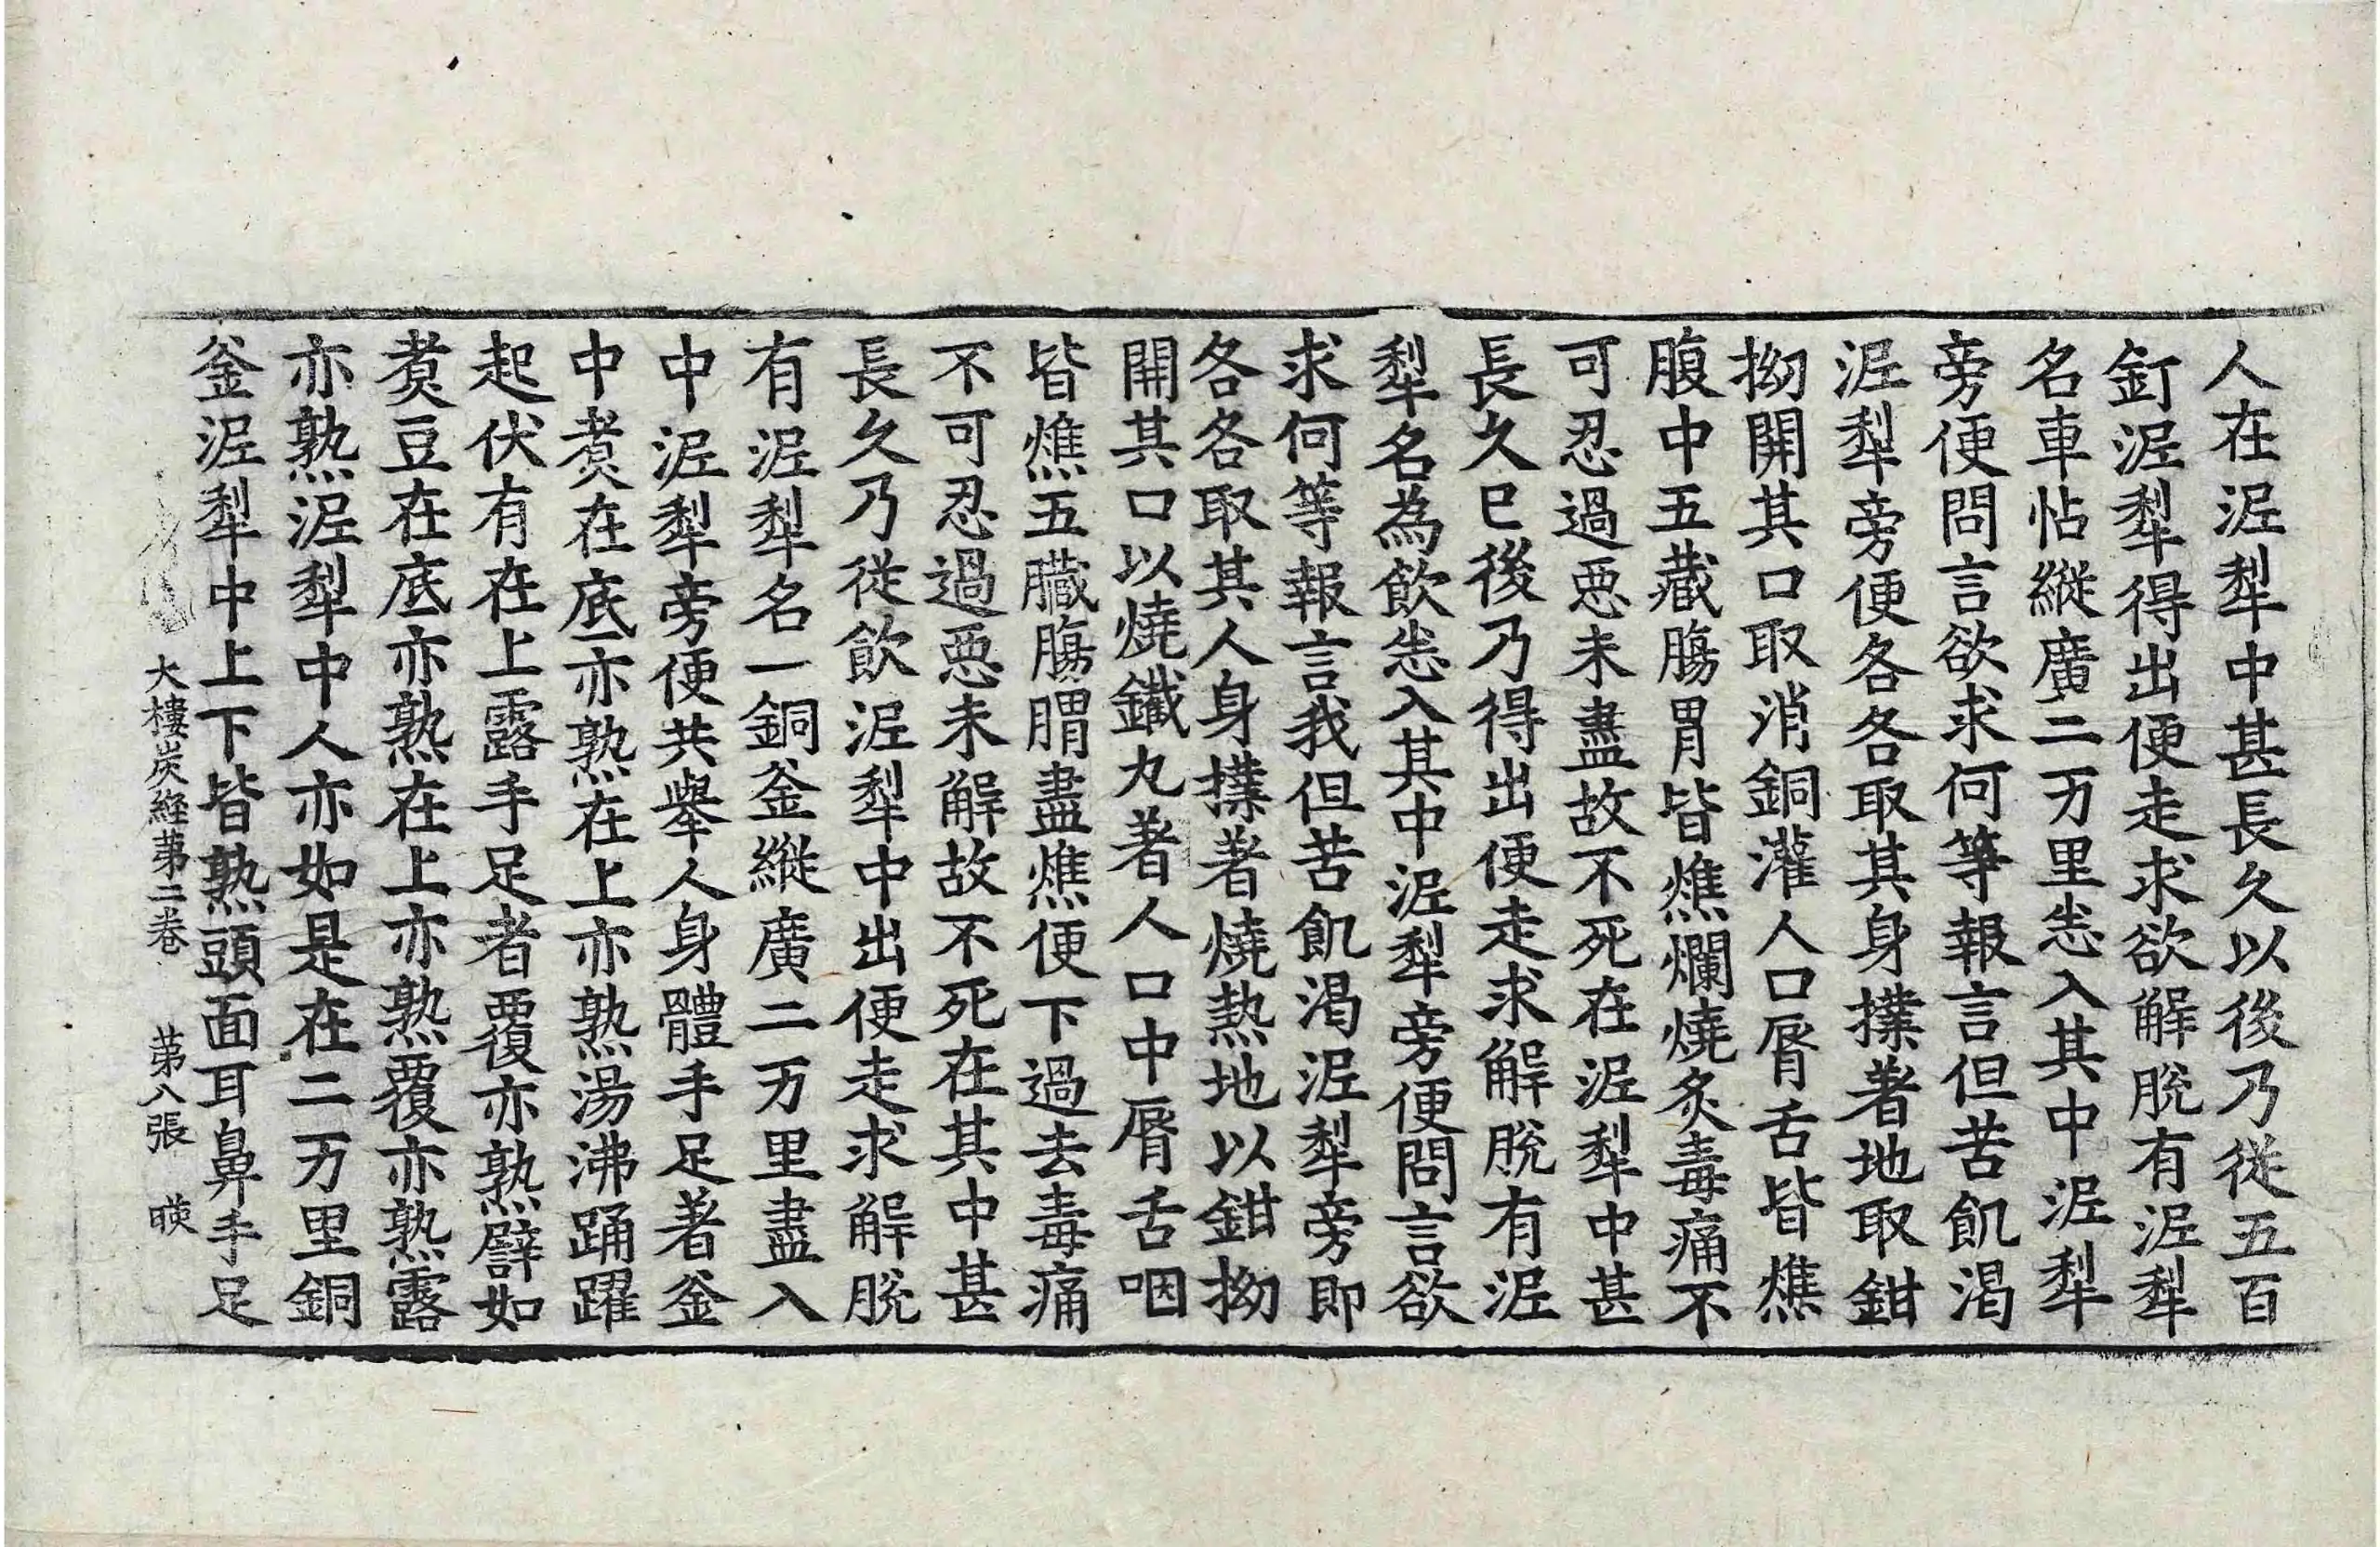 人在泥犁中甚長久以後乃従五百
釘泥犁得出便走求欲解脫有泥犁
名車帖縱廣二万里恙入其中泥犁
旁便問言欲求何等報言但苦飢渴
泥犁旁便各各取其身撲著地取鉗
拗開其口取消銅灌人口脣舌皆燋
腹中五藏膓胃皆燋爛燒炙毒痛不
可忍過惡未盡故不死在泥犁中甚
長久已後乃得出便走求解脫有泥
犁名為飲恙入其中泥犁旁便問言欲
求何等報言我但苦飢渴泥犁旁即
各各取其人身撲著燒熱地以鉗拗
開其口以燒鐵丸著人口中脣舌咽
皆燋五臓膓𦝩盡燋便下過去毒痛
不可忍過惡未解故不死在其中甚
長久乃従飲泥犁中出便走求解脫
有泥犁名一銅釜縱廣二万里盡入
中泥犁旁便共舉人身體手足著釜
中煑在底亦熟在上亦熟湯沸踊躍
起伏有在上露手足者覆亦熟譬如
煑豆在底亦熟在上亦熟覆亦熟露
亦熟泥犁中人亦如是在二万里銅
釜泥犁中上下皆熟頭面耳鼻手足
大樓炭経苐二卷 苐八張 䀹